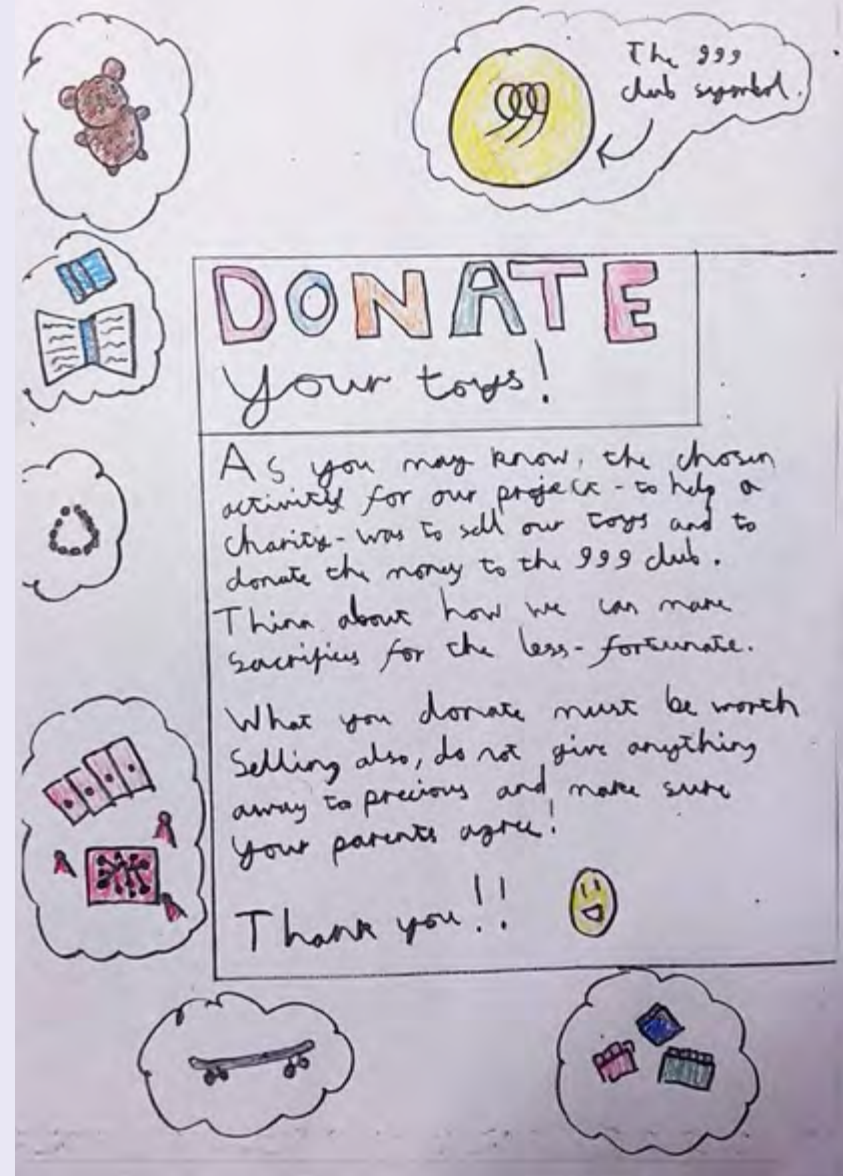 The 999
club symbol.
999
DONATE
Your toys!
As you may know, the chosen
activity for our project - to help a
charity - was to sell our toys and to
donate the money to the 999 club.
Think about how we can make
sacrifices for the less-fortunate.
What you donate must be worth
Selling also, do not give anything
away to precious and make sure
your parents agree!
Thank you!!